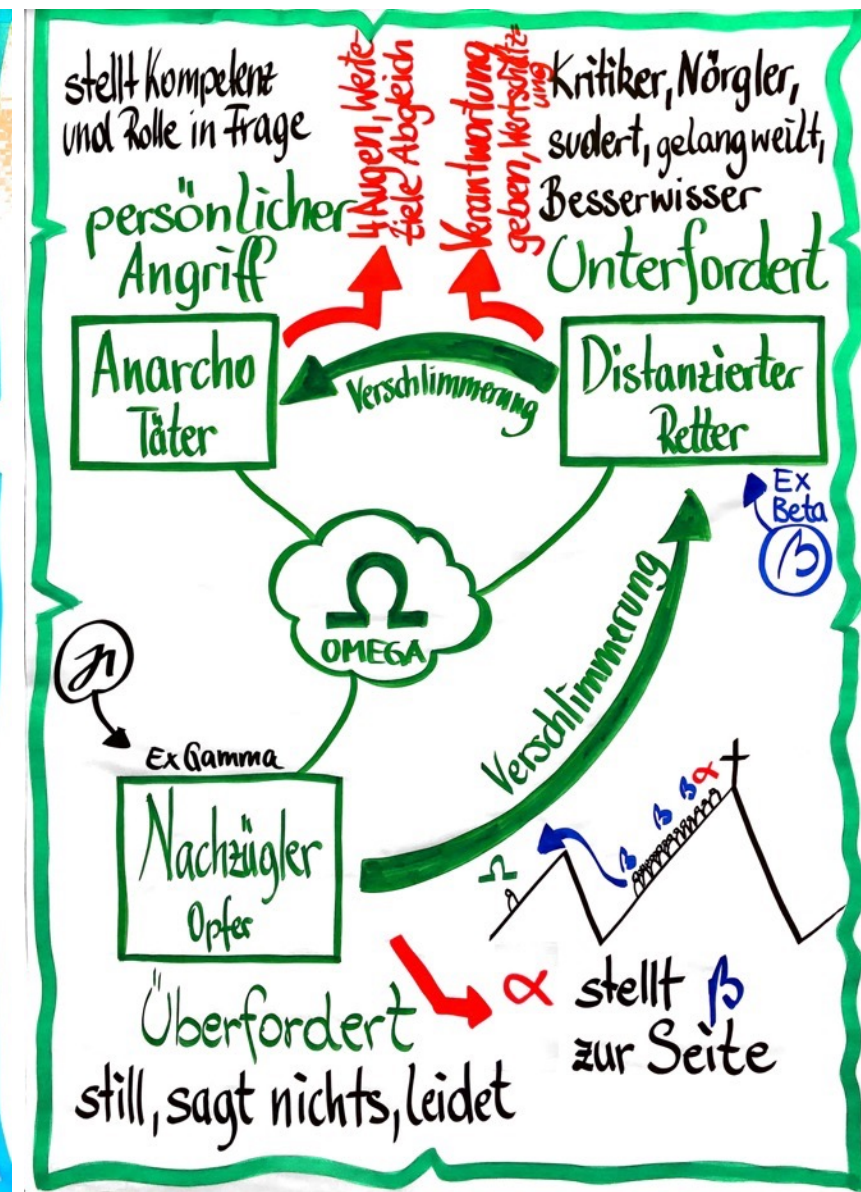 stellt Kompetenz
und Rolle in Frage
persönlicher
Angriff
4 Augen, Werte-
Ziele Abgleich
Verantwortung
geben, Wertschätz=
ung
Kritiker, Nörgler,
sudert, gelangweilt,
Besserwisser
Unterfordert
Anarcho
Täter
Verschlimmerung
Distanzierter
Retter
Ex
Beta
β
Ω
OMEGA
Verschlimmerung
Ex Gamma
Nachzügler
Opfer
Ω
β
β
β α
Überfordert
still, sagt nichts, leidet
α stellt β
zur Seite